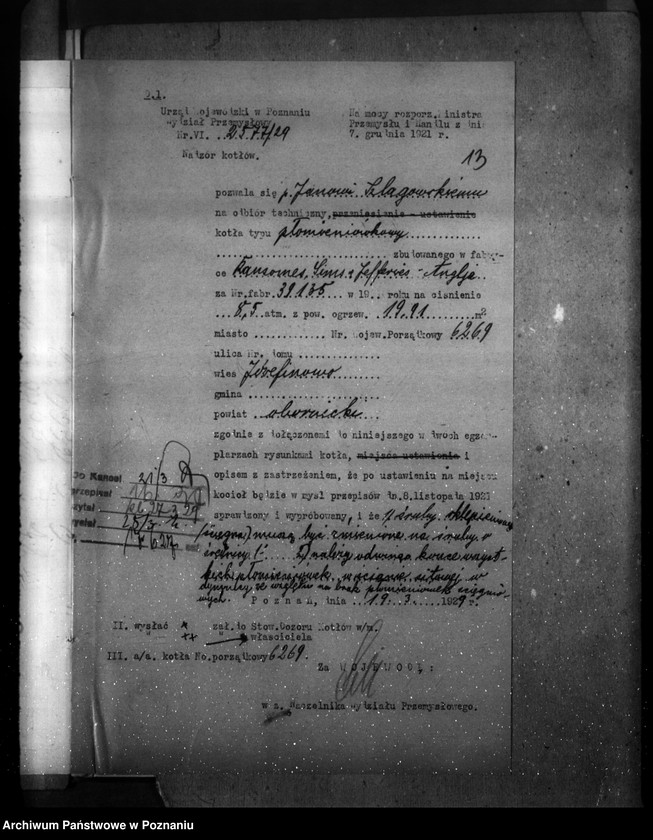 Urząd Wojewódzki w Poznaniu
Wydział Przemysłowy
Nr.VI. 2577/29
Nadzór kotłów.
Na mocy rozporz. Ministra
Przemysłu i Handlu z dnia
7. grudnia 1921 r.
13
pozwala się p. Janowi Szlagowskiemu
na odbiór techniczny, przeniesienie - ustawienie
kotła typu płomieniówkowy
zbudowanego w fabry-
ce Ransomes, Sims & Jefferies - Anglja
za Nr.fabr. 39135 w 19.. roku na ciśnienie
8,5 atm. z pow. ogrzew. 19.91 m2
miasto ............. Nr. Wojew.Porządkowy 6269
ulica Nr. domu ..............
wieś Józefinowo
gmina ....................
powiat obornicki
zgodnie z dołączonemi do niniejszego w dwóch egzem-
plarzach rysunkami kotła, miejsca ustawienia i
opisem z zastrzeżeniem, że po ustawieniu na miejscu
kocioł będzie w myśl przepisów z dn.8.listopada 1921
sprawdzony i wypróbowany, i że 1/ śruby
muszą być zmienione na śruby o
2) należy
w
ze względu na brak płomieniówek
Poznań, dnia 19. 3. 1929 r.
Do Kancel 21/3
przepisał
czytał
wysłał 28/3
II. wysłać zał. do Stow.Dozoru Kotłów w/m.
-"- właściciela
III. a/a. kotła No.porządkowy 6269.
Za WOJEWODĘ:
w z. Naczelnika Wydziału Przemysłowego.
Archiwum Państwowe w Poznaniu